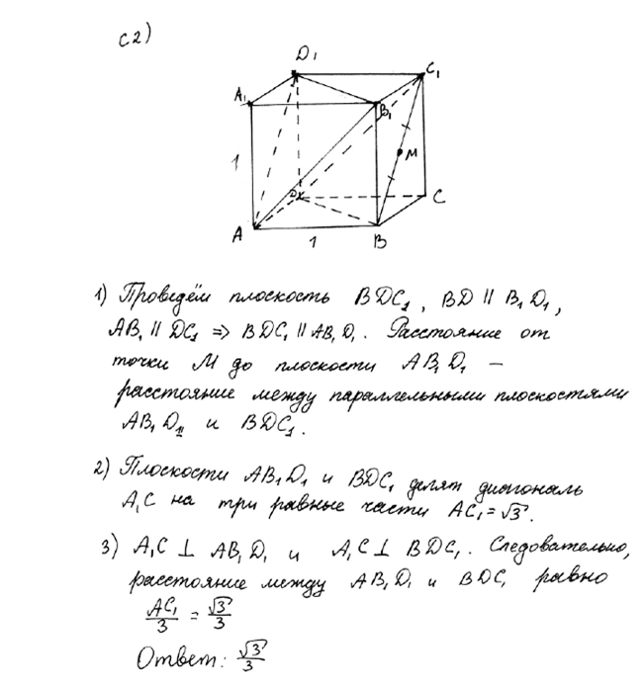 С2)
D₁
C₁
A₁
B₁
1
M
D
C
A
B
1
1) Проведём плоскость BDC₁, BD || B₁D₁,
AB₁ || DC₁ ⇒ BDC₁ || AB₁D₁. Расстояние от
точки M до плоскости AB₁D₁ –
расстояние между параллельными плоскостями
AB₁D₁ и BDC₁.
2) Плоскости AB₁D₁ и BDC₁ делят диагональ
A₁C на три равные части AC₁ = √3.
3) A₁C ⊥ AB₁D₁ и A₁C ⊥ BDC₁. Следовательно,
расстояние между AB₁D₁ и BDC₁ равно
AC₁/3 = √3/3
Ответ: √3/3